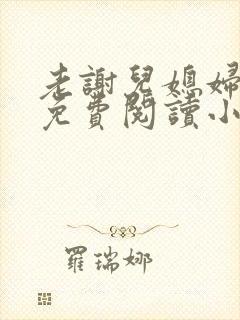 老謝兒媳婦
免費閱讀小
羅瑞娜